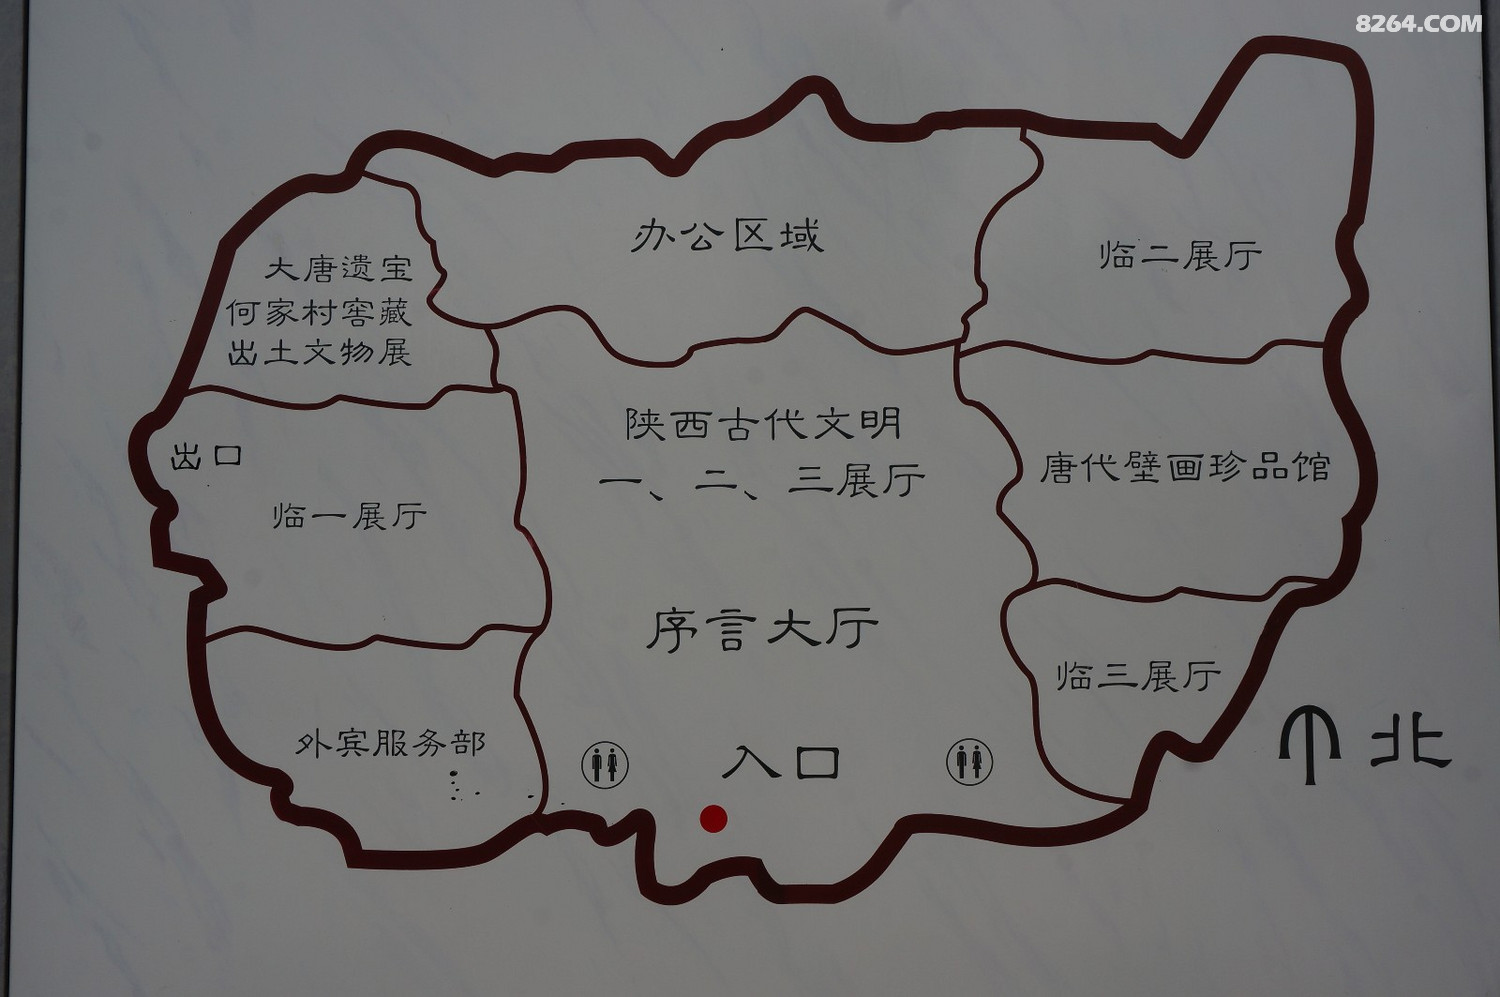 8264.COM
办公区域
临二展厅
大唐遗宝
何家村窖藏
出土文物展
陕西古代文明
一、二、三展厅
出口
唐代壁画珍品馆
临一展厅
序言大厅
临三展厅
外宾服务部
入口
北